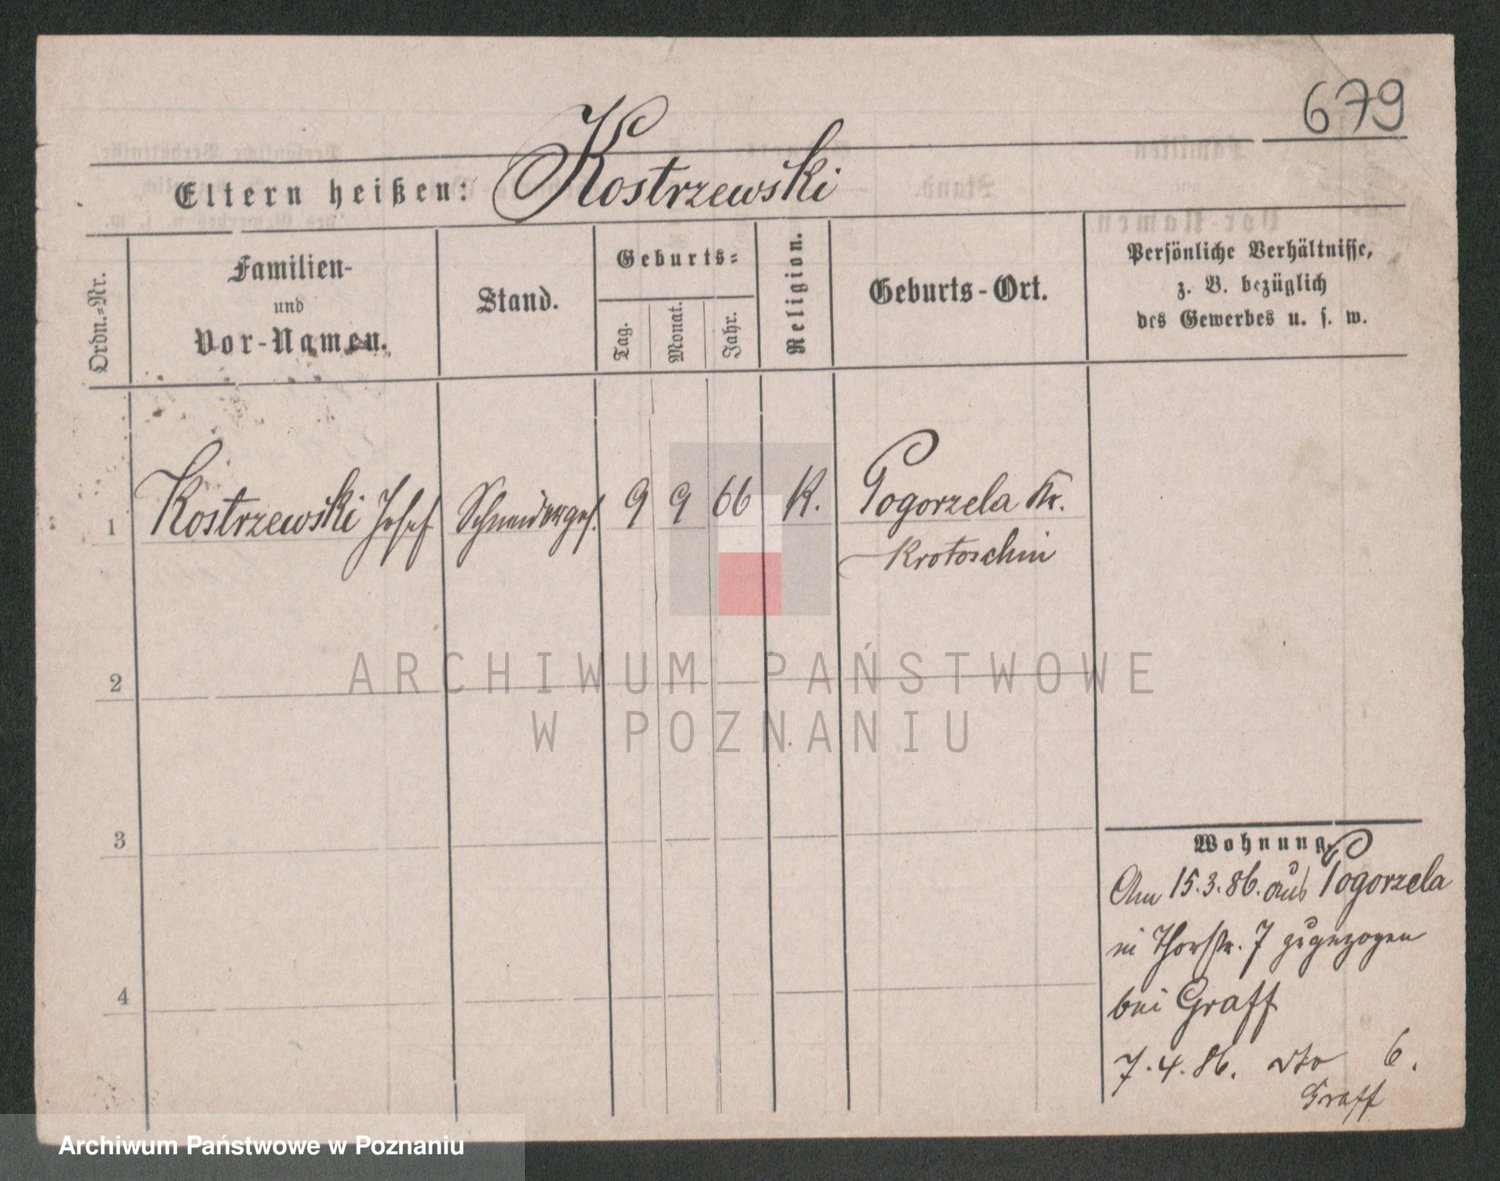 679
Eltern heißen: Kostrzewski
Ordn.-Nr.
Familien-
und
Vor-Namen.
Stand.
Geburts-
Tag.
Monat.
Jahr.
Religion.
Geburts-Ort.
Persönliche Verhältnisse,
z. B. bezüglich
des Gewerbes u. s. w.
1 Kostrzewski Josef Schneiderges. 9 9 66 K. Pogorzela Kr.
Krotoschin
2
3
4
Wohnung.
Am 15.3.86. aus Pogorzela
in Thorstr. 7 zugezogen
bei Graff
7.4.86. dto 6.
Graff
ARCHIWUM PAŃSTWOWE
W POZNANIU
Archiwum Państwowe w Poznaniu